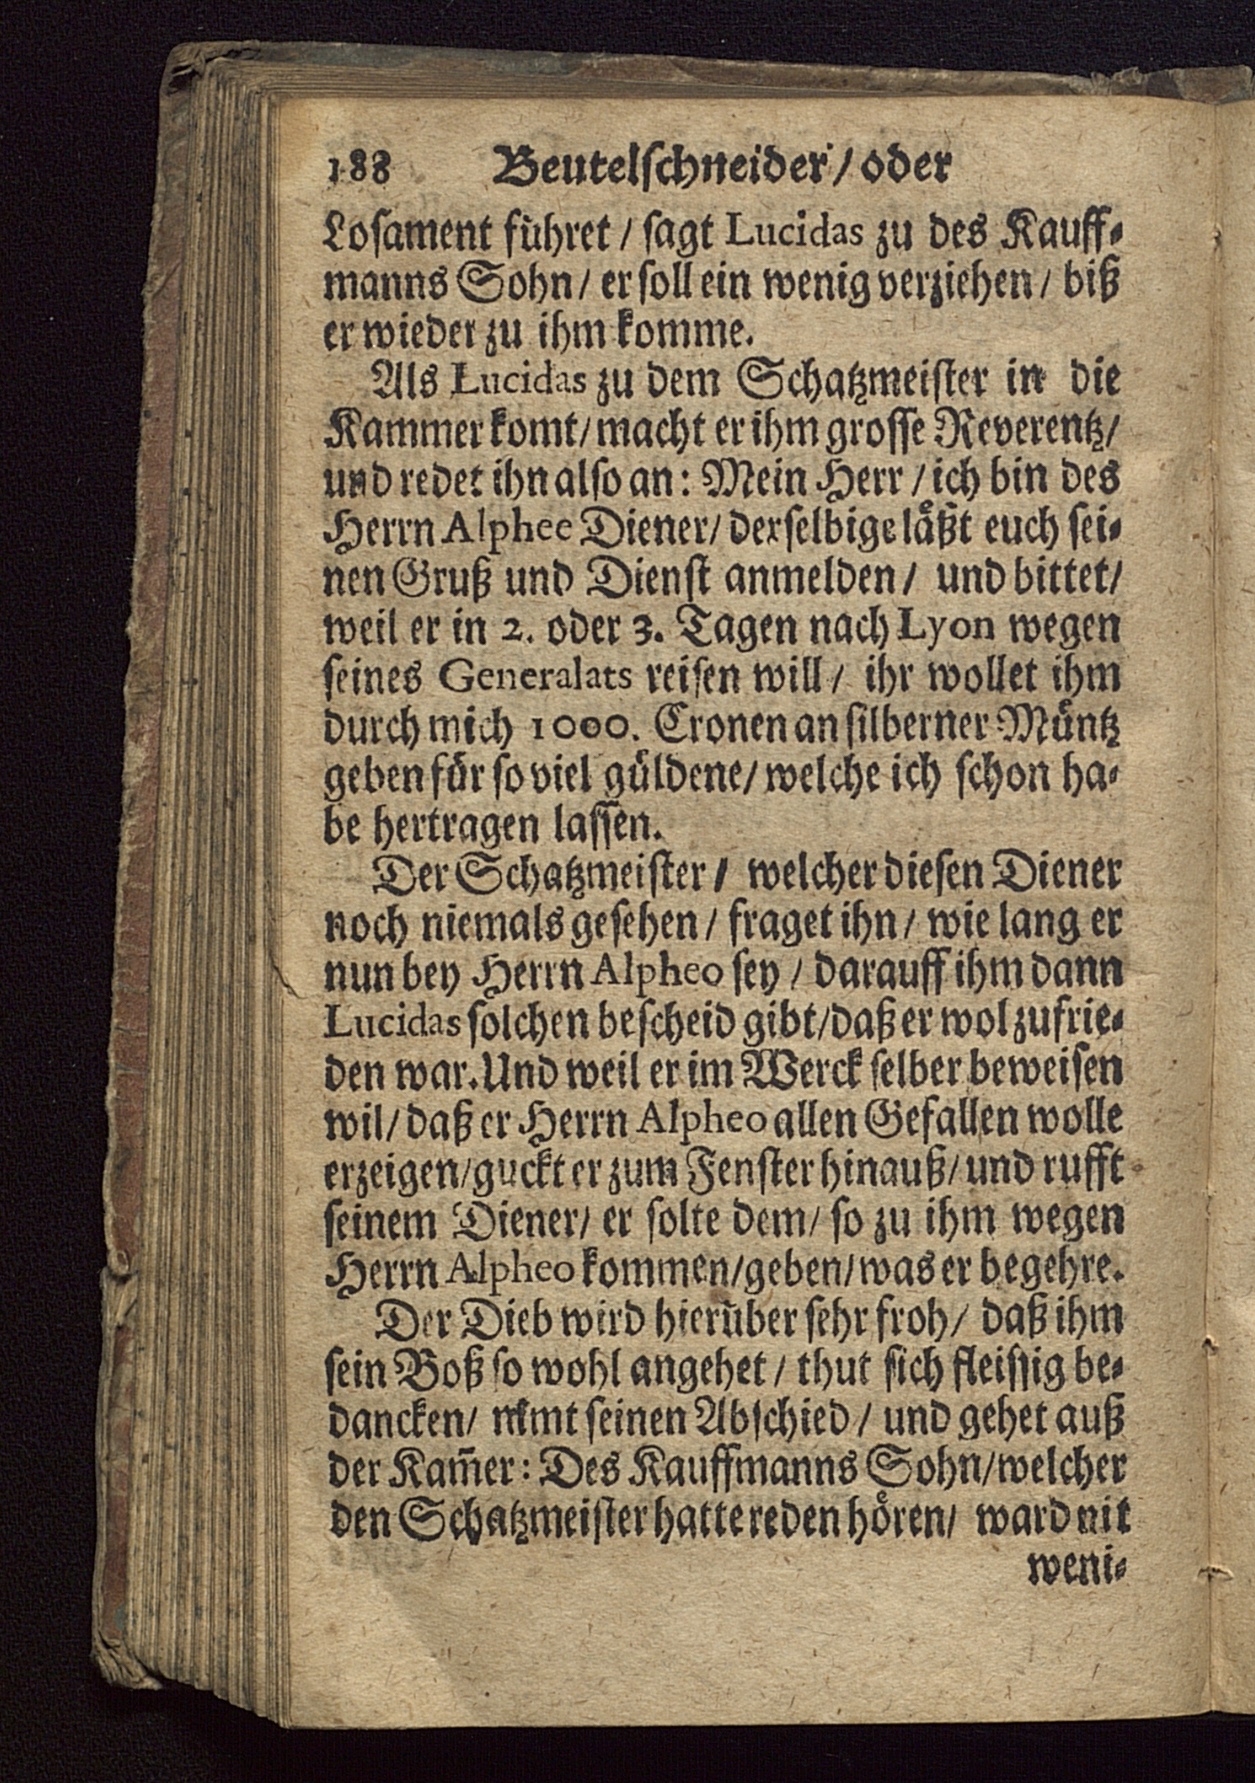 188 Beutelſchneider / oder
Loſament fuͤhret / ſagt Lucidas zu des Kauff-
manns Sohn / er ſoll ein wenig verziehen / biß
er wieder zu ihm komme.
Als Lucidas zu dem Schatzmeiſter in die
Kammer komt / macht er ihm groſſe Reverentz /
und redet ihn alſo an: Mein Herr / ich bin des
Herrn Alphee Diener / derſelbige laͤßt euch ſei-
nen Gruß und Dienſt anmelden / und bittet /
weil er in 2. oder 3. Tagen nach Lyon wegen
ſeines Generalats reiſen will / ihr wollet ihm
durch mich 1000. Cronen an ſilberner Muͤntz
geben fuͤr ſo viel guͤldene / welche ich ſchon ha-
be hertragen laſſen.
Der Schatzmeiſter / welcher dieſen Diener
noch niemals geſehen / fraget ihn / wie lang er
nun bey Herrn Alpheo ſey / darauff ihm dann
Lucidas ſolchen beſcheid gibt / daß er wol zufrie-
den war. Und weil er im Werck ſelber beweiſen
wil / daß er Herrn Alpheo allen Gefallen wolle
erzeigen / guckt er zum Fenſter hinauß / und rufft
ſeinem Diener / er ſolte dem / ſo zu ihm wegen
Herrn Alpheo kommen / geben / was er begehre.
Der Dieb wird hieruͤber ſehr froh / daß ihm
ſein Boß ſo wohl angehet / thut ſich fleiſſig be-
dancken / nimt ſeinen Abſchied / und gehet auß
der Kam̃er: Des Kauffmanns Sohn / welcher
den Schatzmeiſter hatte reden hoͤren / ward nit
weni-